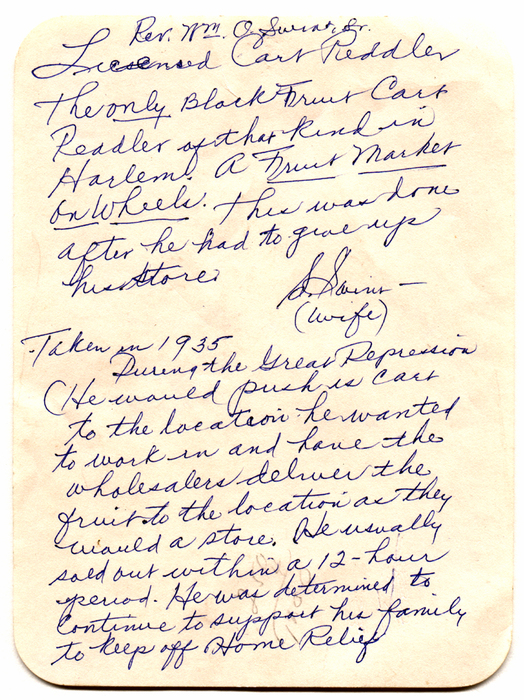 Rev. Wm. O. Swint, Sr.
Licensed Cart Peddler
The only Black Fruit Cart
Peadler of that kind in
Harlem. A Fruit Market
On Wheels. This was done
after he had to give up
his store.
S. Swint –
(wife)
Taken in 1935
During the Great Repression
(He would push is cart
to the location he wanted
to work in and have the
wholesalers deliver the
fruit to the location as they
would a store. He usually
sold out within a 12-hour
period. He was determined to
Continue to support his family
to keep off Home Relief